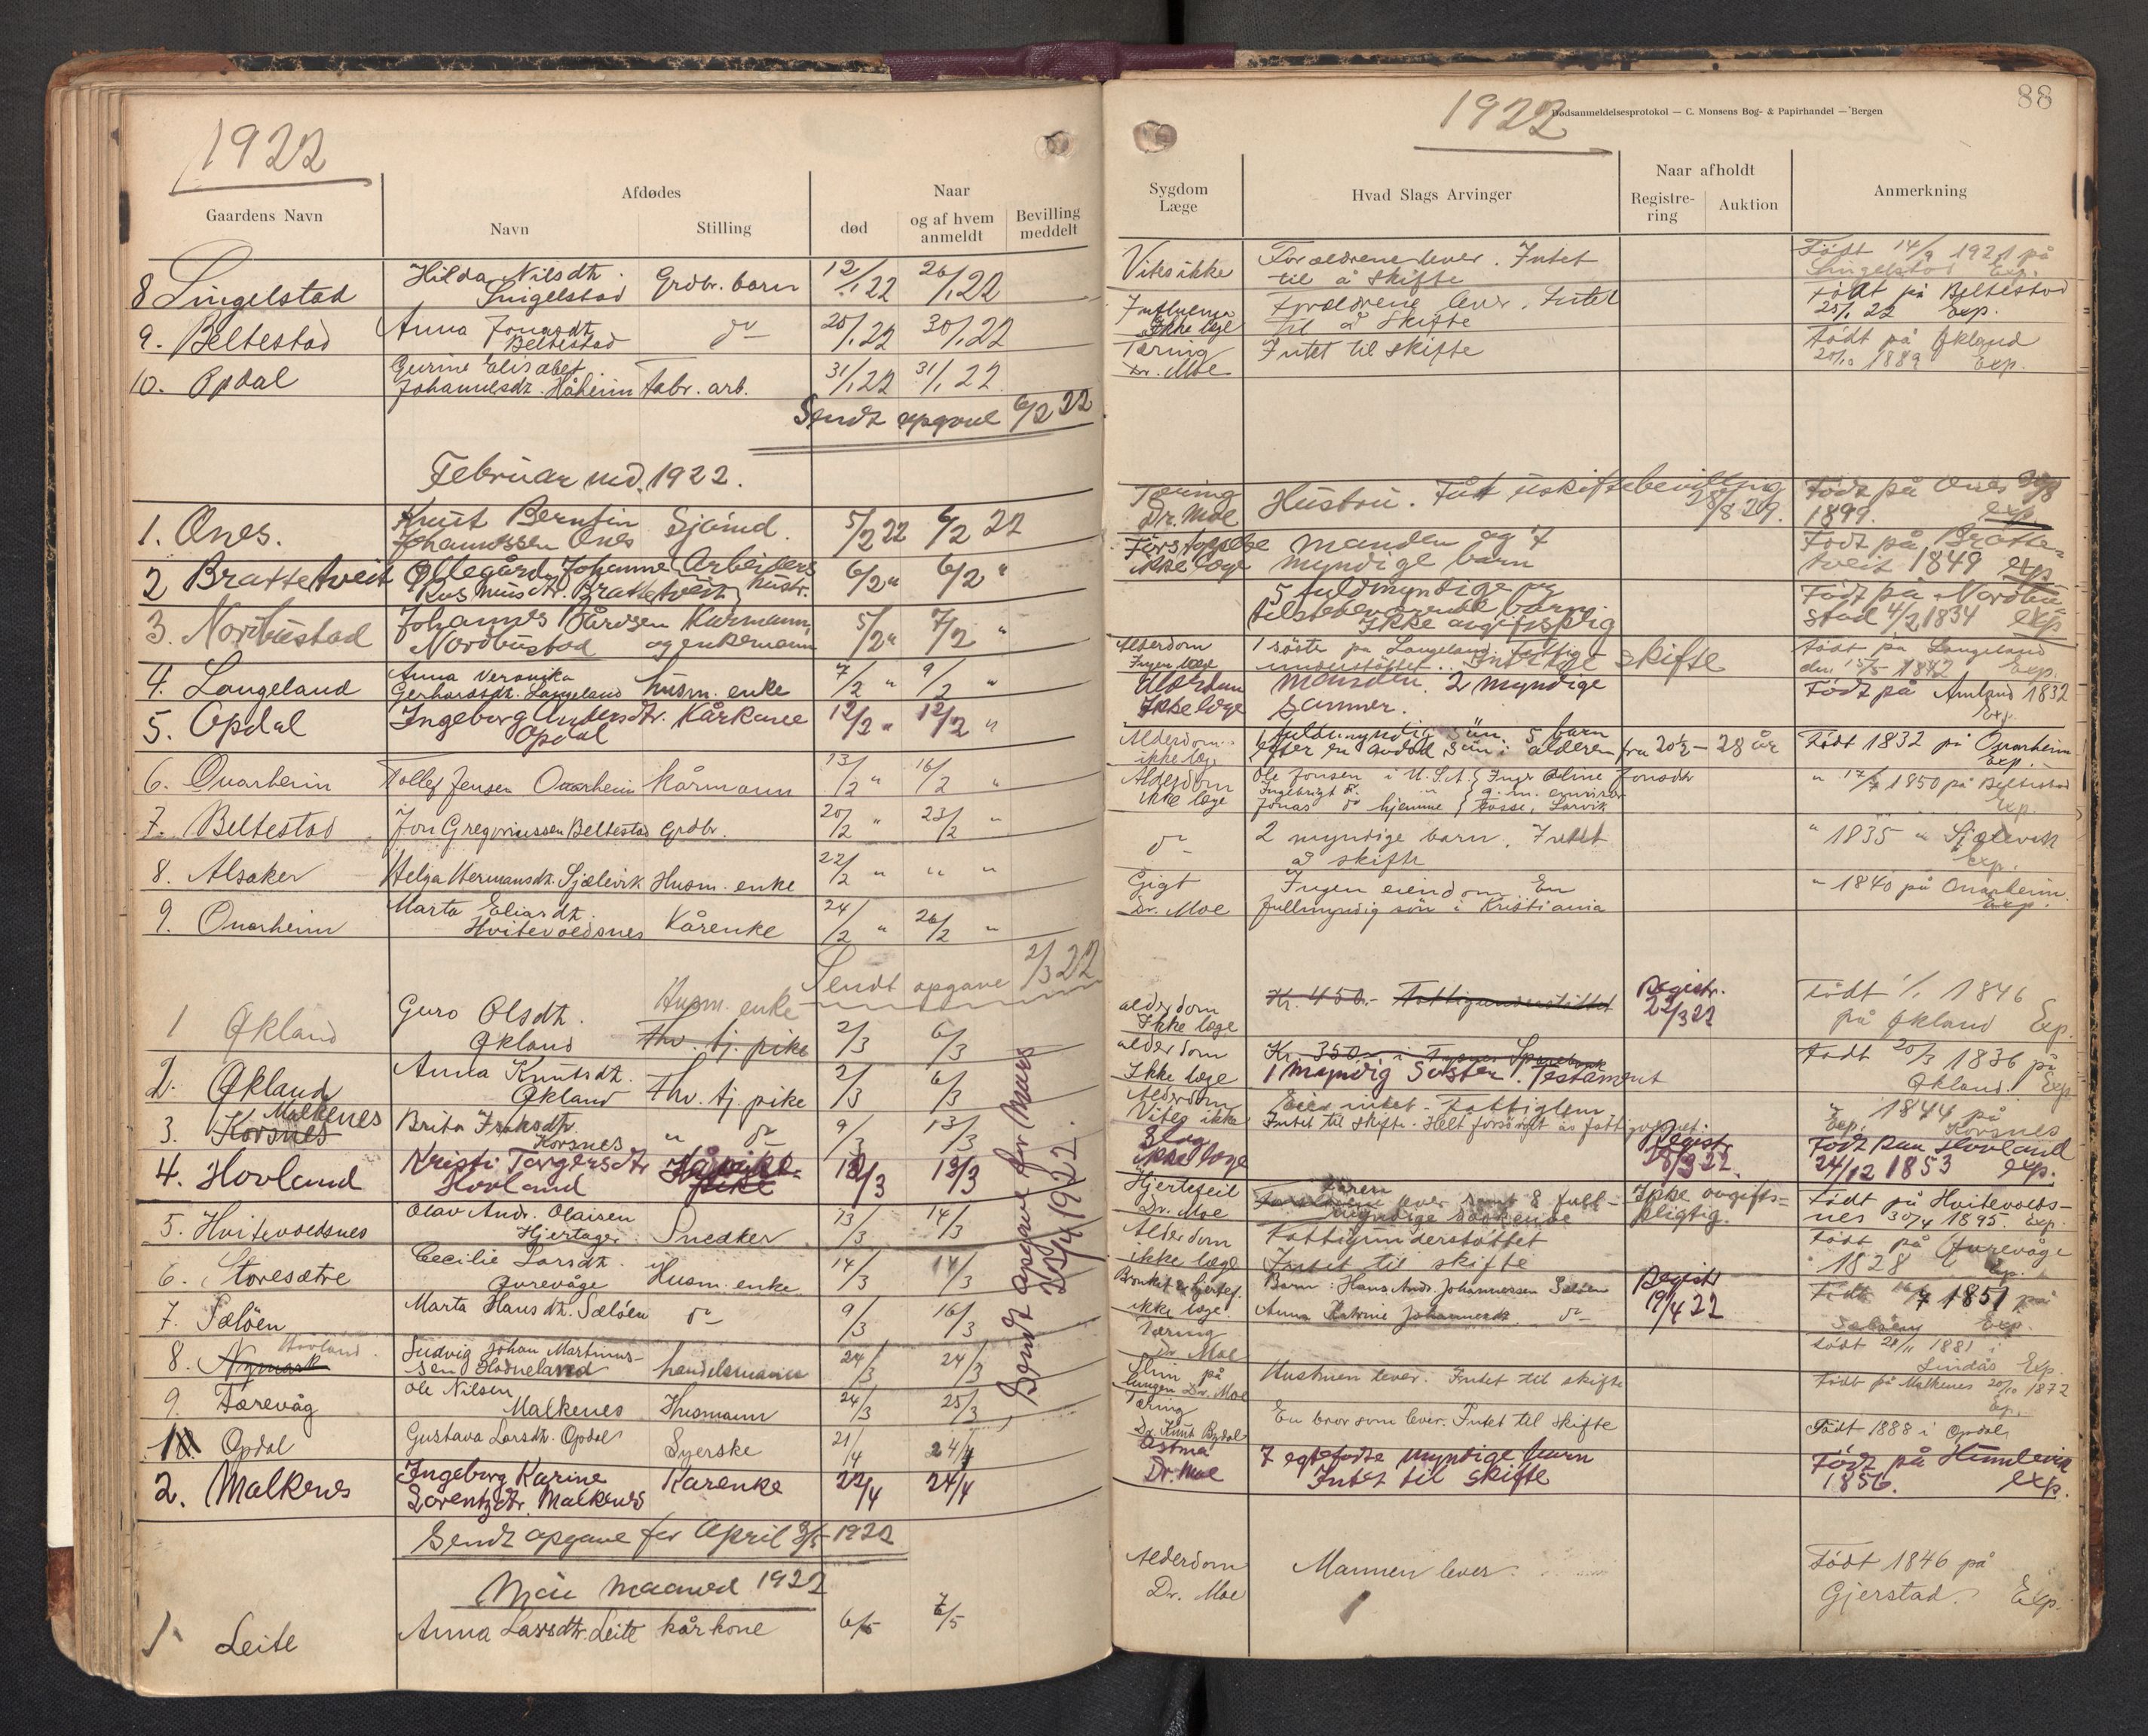 1922
Gaardens Navn
Afdødes
Navn
Stilling
Naar
død
og af hvem anmeldt
Bevilling meddelt
8 Singelstad Hilda Nilsdtr. Grdbr. barn 12/1 22 26/1 22
Singelstad
9. Beltestad Anna Jonasdtr. do 28/1 22 30/1 22
Beltestad
10. Opdal Gurine Elisabet
Johannesdtr. Håheim fabr. arb. 31/1 22 31/1 22
Sendt opgave 6/2 22
Februar md. 1922.
1. Ones. Knut Berntin Sjømd. 5/2 22 6/2 22
Johannessen Ones
2 Brattetveit Ollegård Johanne Arbeiders 6/2 " 6/2 "
Rasmusdtr. Brattetveit hustr.
3. Nordbustad Johannes Bårdsen Kårmann 5/2 " 7/2 "
Nordbustad og enkemann
4. Langeland Anna Veronika
Gerhardsdtr. Langeland husm. enke 7/2 " 9/2 "
5. Opdal Ingeborg Andersdtr. Kårkone 12/2 " 12/2 "
Opdal
6. Onarheim Tollef Jensen Onarheim Kårmann 13/2 " 16/2 "
7. Beltestad Jon Gregoriussen Beltestad Grdbr. 20/2 " 23/2 "
8. Alsaker Helga Hermansdtr. Sjælevik Husm. enke 22/2 " " "
9. Onarheim Marta Eliasdtr. Kårenke 24/2 " 26/2 "
Hvitevoldsnes
Sendt opgave 2/3 22
1 Økland Guro Olsdtr. Husm. enke
Økland Fhv. tj. pike 2/3 6/3
2. Økland Anna Knutsdtr.
Økland Fhv. tj. pike 2/3 6/3
Malkenes
3. Korsnes Brita Korsnes " do 9/3 13/3
4. Hovland Kristi Torgersdtr. pike 12/3 13/3
Hovland
5. Hvitevoldsnes Olav Andr. Olaisen
Hjertager Snedker 13/3 14/3
6. Storesætre Cecilie Larsdtr.
Gurevåge Husm. enke 14/3 14/3
7. Sæløen Marta Hansdtr. Sæløen do 9/3 16/3
Hovland
8. Nymark Ludvig Johan Martinus-
sen Hodneland handelsmann 24/3 24/3
9. Færevåg Ole Nilsen
Malkenes Husmann 24/3 25/3
Sendt opgave for Mars
25/4 1922.
1 Opdal Gustava Larsdtr. Opdal Syerske 21/4 24/4
2. Malkenes Ingeborg Karine Kårenke 22/4 24/4
Lorentzdtr. Malkenes
Sendt opgave for April 2/5 1922
Mai maaned 1922
1. Leite Anna Larsdtr. Leite kårkone 6/5 7/5
1922
88
Dødsanmeldelsesprotokol — C. Monsens Bog- & Papirhandel — Bergen
Sygdom
Læge
Hvad Slags Arvinger
Naar afholdt
Registre-ring
Auktion
Anmerkning
Vites ikke Forældrene lever. Intet Født 14/9 1921 på
til å skifte Singelstad Exp.
Influensa Forældrene lever. Intet Født på Beltestad
Ikke læge til å skifte 25/1 22 Exp.
Tæring Intet til skifte Født på Økland
Dr. Moe 20/10 1889 Exp.
Tæring Hustru. Fåt uskiftebevilling Født på Ones
Dr. Moe 28/8 29. 1899. exp.
Forstoppelse Manden og 7 Født på Bratte-
ikke læge myndige barn tveit 1849 exp.
5 fuldmyndige og Født på Nordbu-
tilstedeværende barn. stad 4/2 1834 exp
Ikke avgiftspligtig
Alderdom 1 søster på Langeland. Fattig- Født på Langeland
Ingen læge understøttet. Intet til skifte den 15/5 1842 Exp.
Alderdom Manden. 2 myndige Født på Amland 1832
Ikke læge sønner. Exp.
Alderdom 1 fuldmyndig søn. 5 barn
ikke læge efter en avdød søn i alderen fra 20½ - 28 år Født 1832 på Onarheim
Exp.
Alderdom Ole Jonsen i U.S.A. Inger Oline Jonsdtr. " 17/7 1850 på Beltestad
ikke læge Ingebrigt do " g. m.
Jonas do hjemme Fosse, Larvik Exp.
do 2 myndige barn. Intet " 1835 " Sjælevik
å skifte Exp.
Gigt Ingen eiendom. En " 1840 på Onarheim
Dr. Moe fullmyndig søn i Kristiania Exp.
alderdom Kr. 450.- Fattigunderstøttet Registr. Født 1/1 1846
Ikke læge 22/3 22 på Økland Exp.
alderdom Kr. 350.- i Tysnes Sparebank Født 20/3 1836 på
Ikke læge 1 myndig søster. Testament Økland. Exp
Alderdom Eier intet - fattiglem " 1844 på
Vites ikke Intet til skifte. Helt forsørget av fattigvesenet. Exp. Korsnes
Slag Registr. Født paa Hovland
ikke læge 28/3 22. 24/12 1853 exp.
Hjertefeil lever samt 8 full- Ikke avgifts- Født på Hvitevolds-
Dr. Moe myndige søskende pligtig. nes 30/4 1895. Exp
Alderdom Fattigunderstøttet Født på Gurevåge
ikke læge Intet til skifte 1828 Exp.
Bronkit & hjertef. Barn: Hans Andr. Johannessen Sæløen Registr Født 16/7 1851 på
ikke læge Anna Katrine Johannesdtr. do 19/4 22 Sæløen Exp.
Tæring Født 21/11 1881 i
Dr Moe Lindås Exp.
Slim på Hustruen lever. Intet til skifte Født på Malkenes 20/10 1872
lungen Dr. Moe Exp.
Tæring En bror som lever. Intet til skifte Født 1888 i Opdal
Dr. Knut Bjydal
Astma 7 egtefødte myndige barn Født på Humlevik
Dr. Moe Intet til skifte 1856. exp.
Alderdom Mannen lever Født 1846 på
Dr. Moe Gjerstad. Exp.